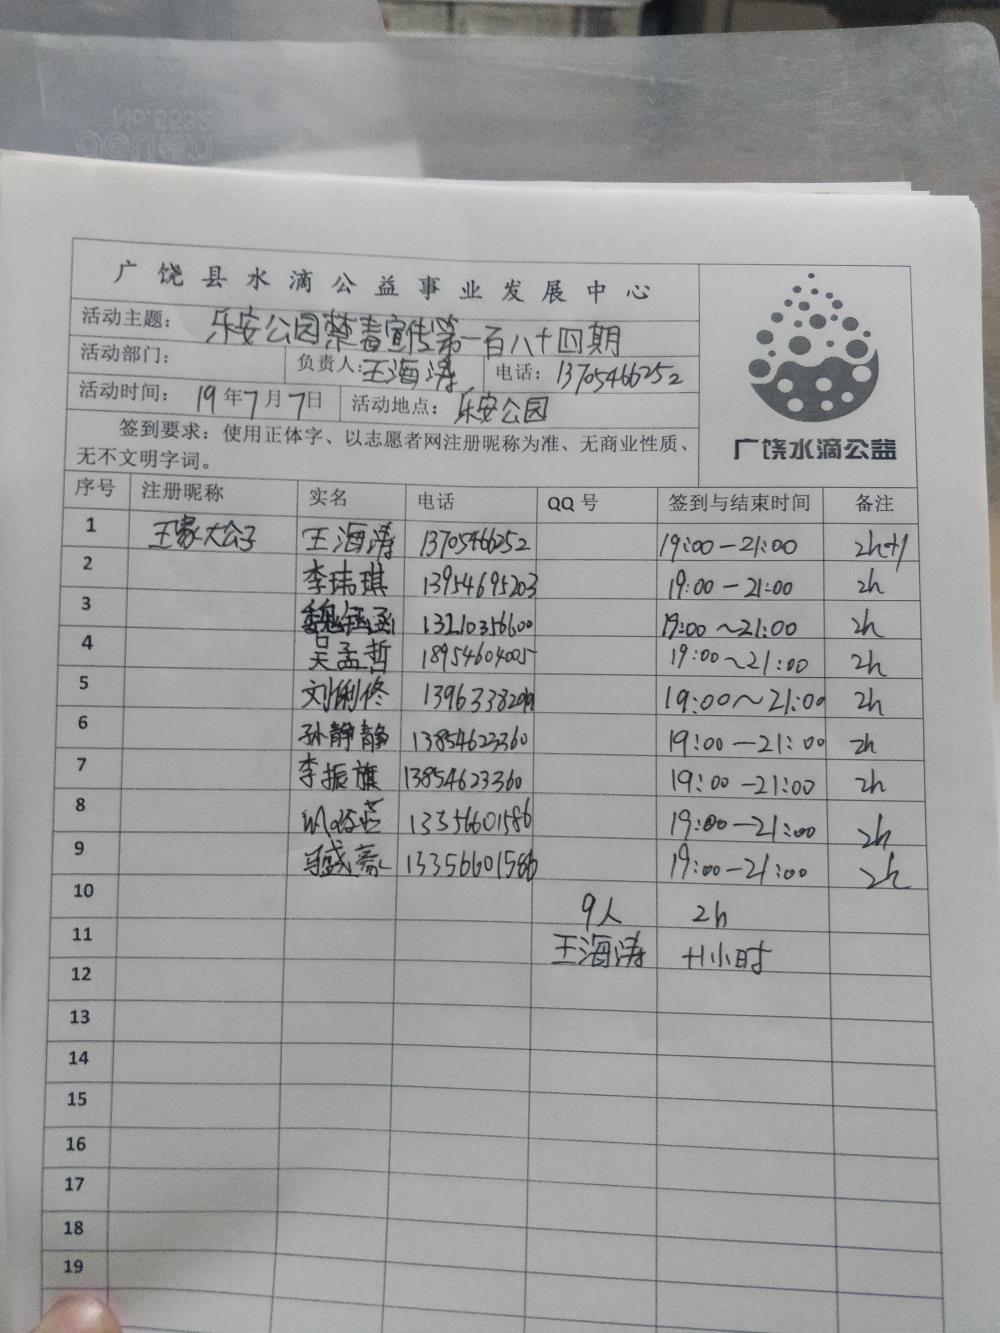 No.5532
广饶县水滴公益事业发展中心
活动主题： 乐安公园禁毒宣传第一百八十四期
活动部门： 负责人：王海涛 电话：13705466252
活动时间： 19年7月7日 活动地点： 乐安公园
签到要求：使用正体字、以志愿者网注册昵称为准、无商业性质、
无不文明字词。
广饶水滴公益
序号 注册昵称 实名 电话 QQ号 签到与结束时间 备注
1 王家大公子 王海涛 13705466252 19:00-21:00 2h+1
2 李玮琪 13954695203 19:00-21:00 2h
3 魏钰函 13210356600 19:00~21:00 2h
4 吴孟哲 18954604005 19:00~21:00 2h
5 刘俐佟 19:00~21:00 2h
6 孙静静 13854623360 19:00-21:00 2h
7 李振旗 13854623360 19:00-21:00 2h
8 13356601586 19:00-21:00 2h
9 13356601586 19:00-21:00 2h
10 9人 2h
11 王海涛 +1小时
12
13
14
15
16
17
18
19